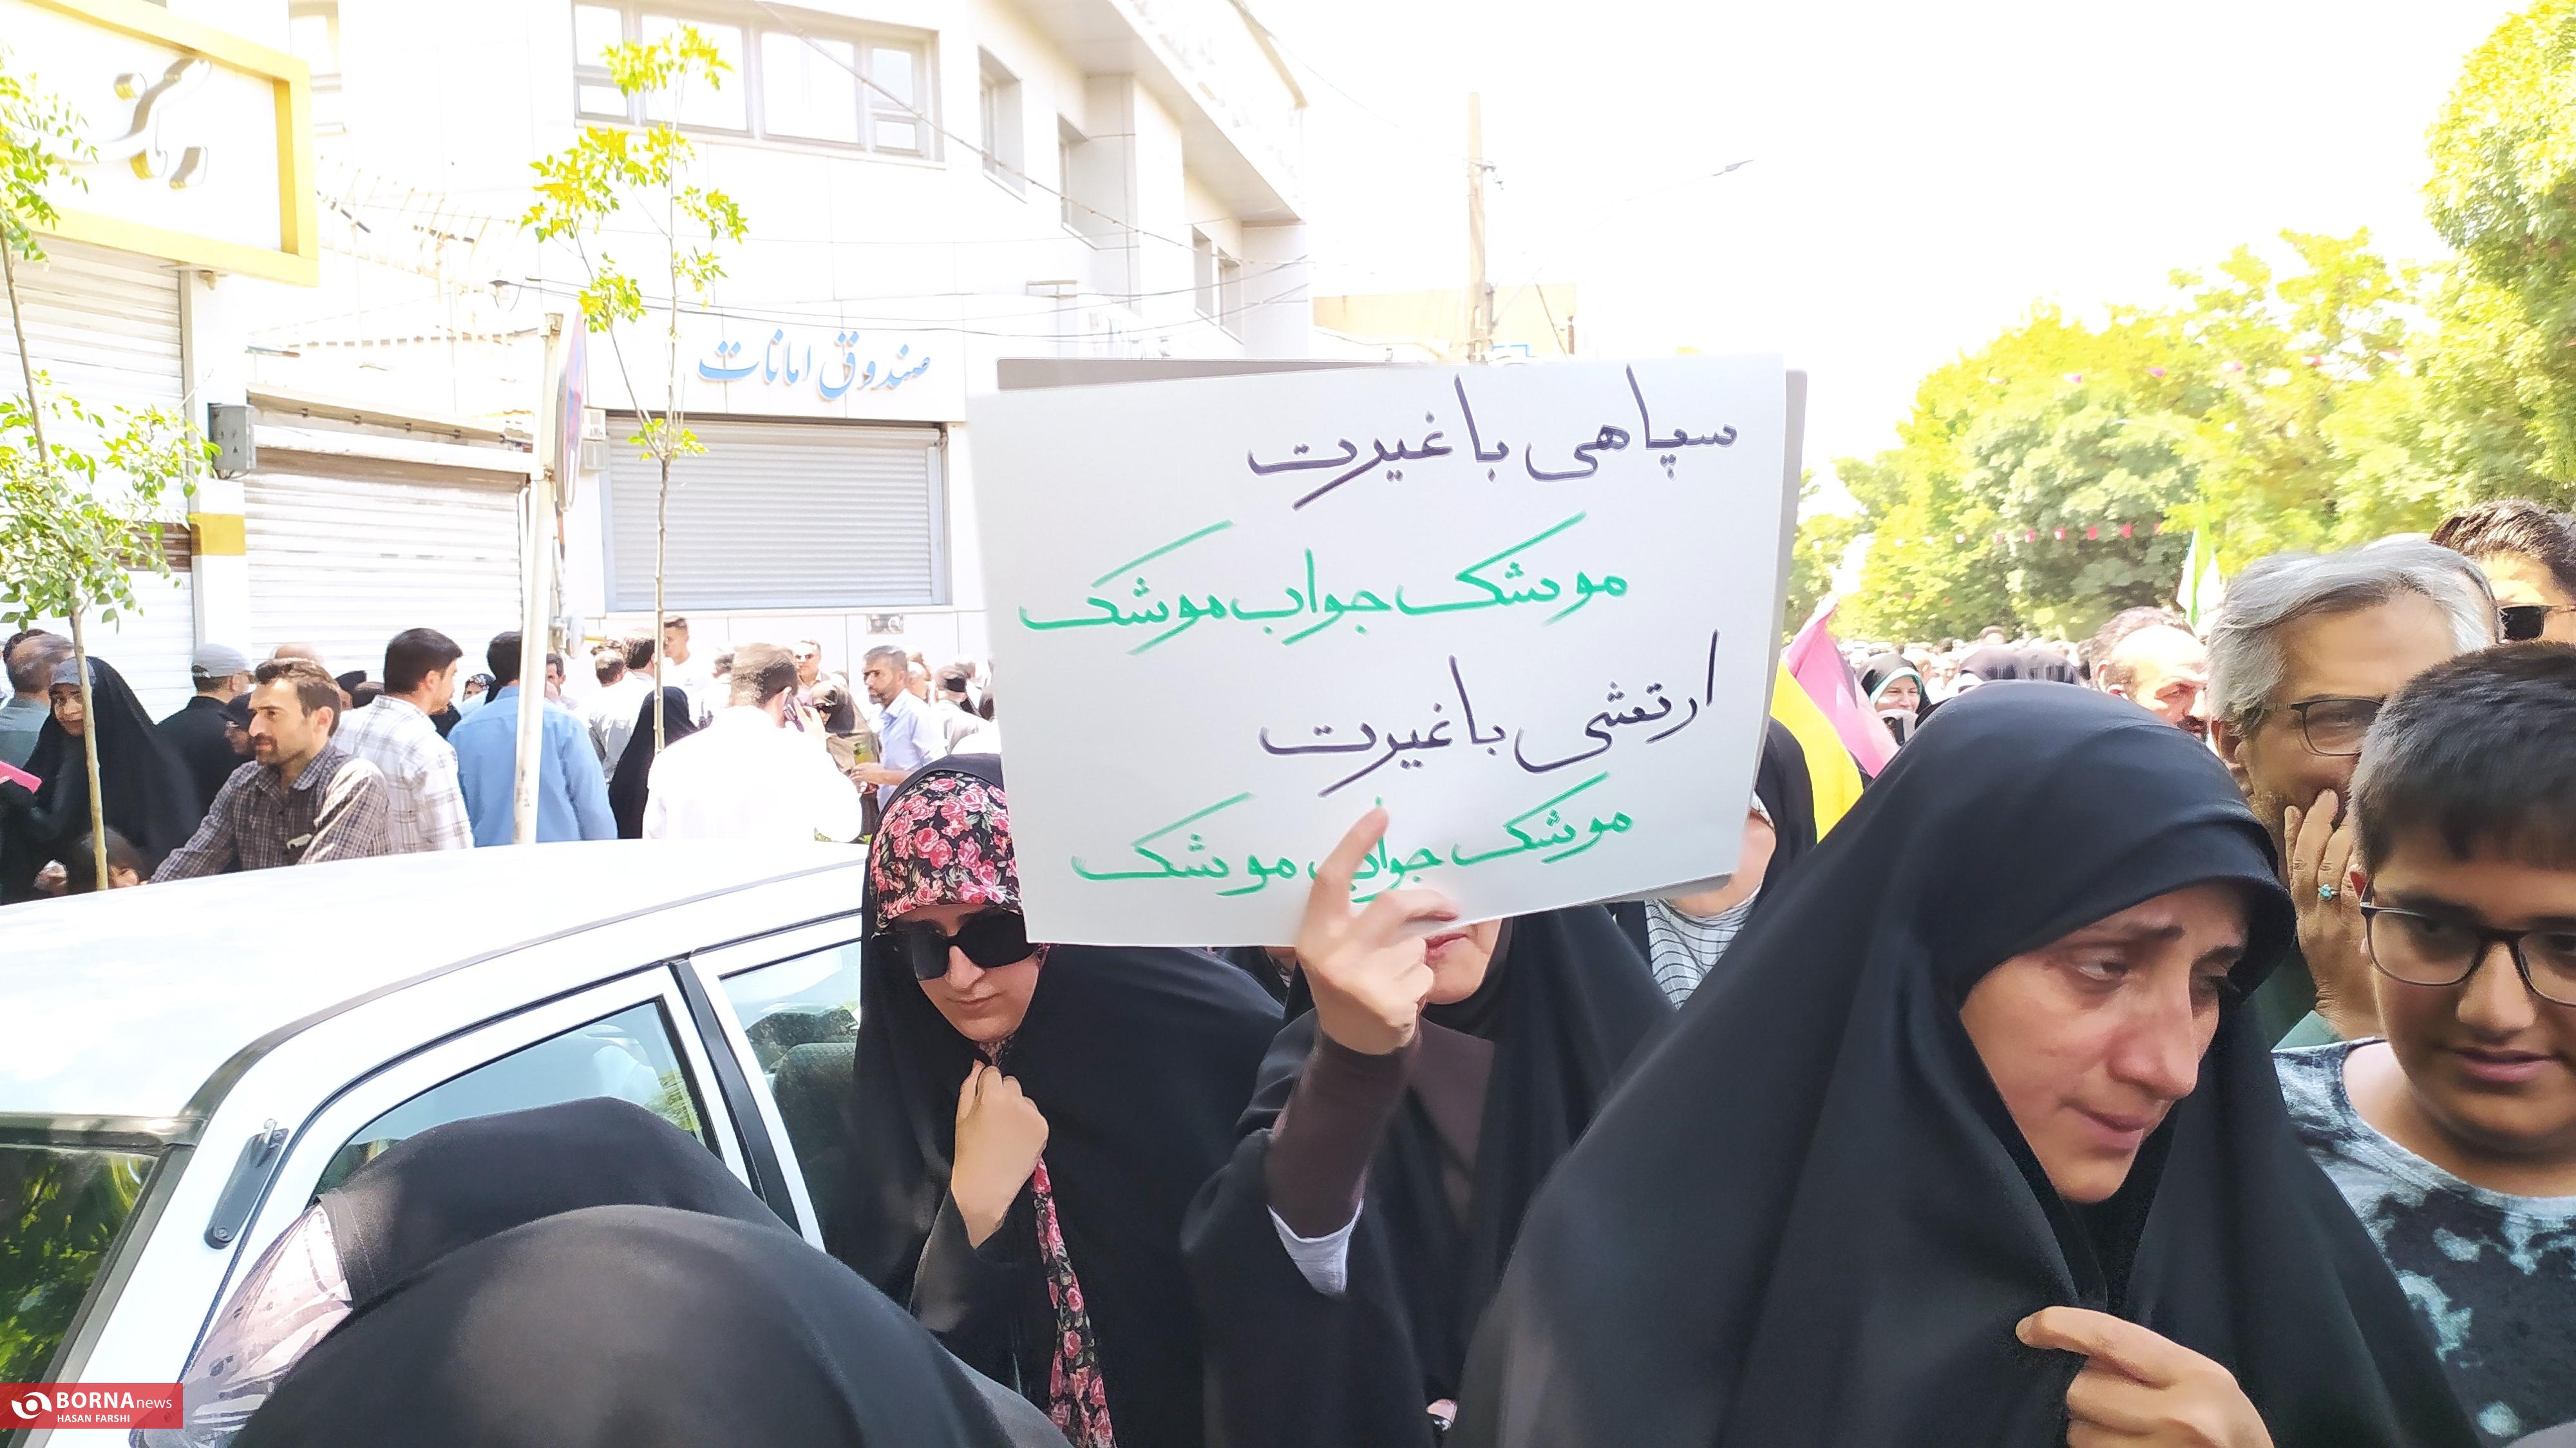 صندوق امانات
سپاهی با غیرت
موشک جواب موشک
ارتشی با غیرت
موشک جواب موشک
BORNA news
HASAN FARSHI